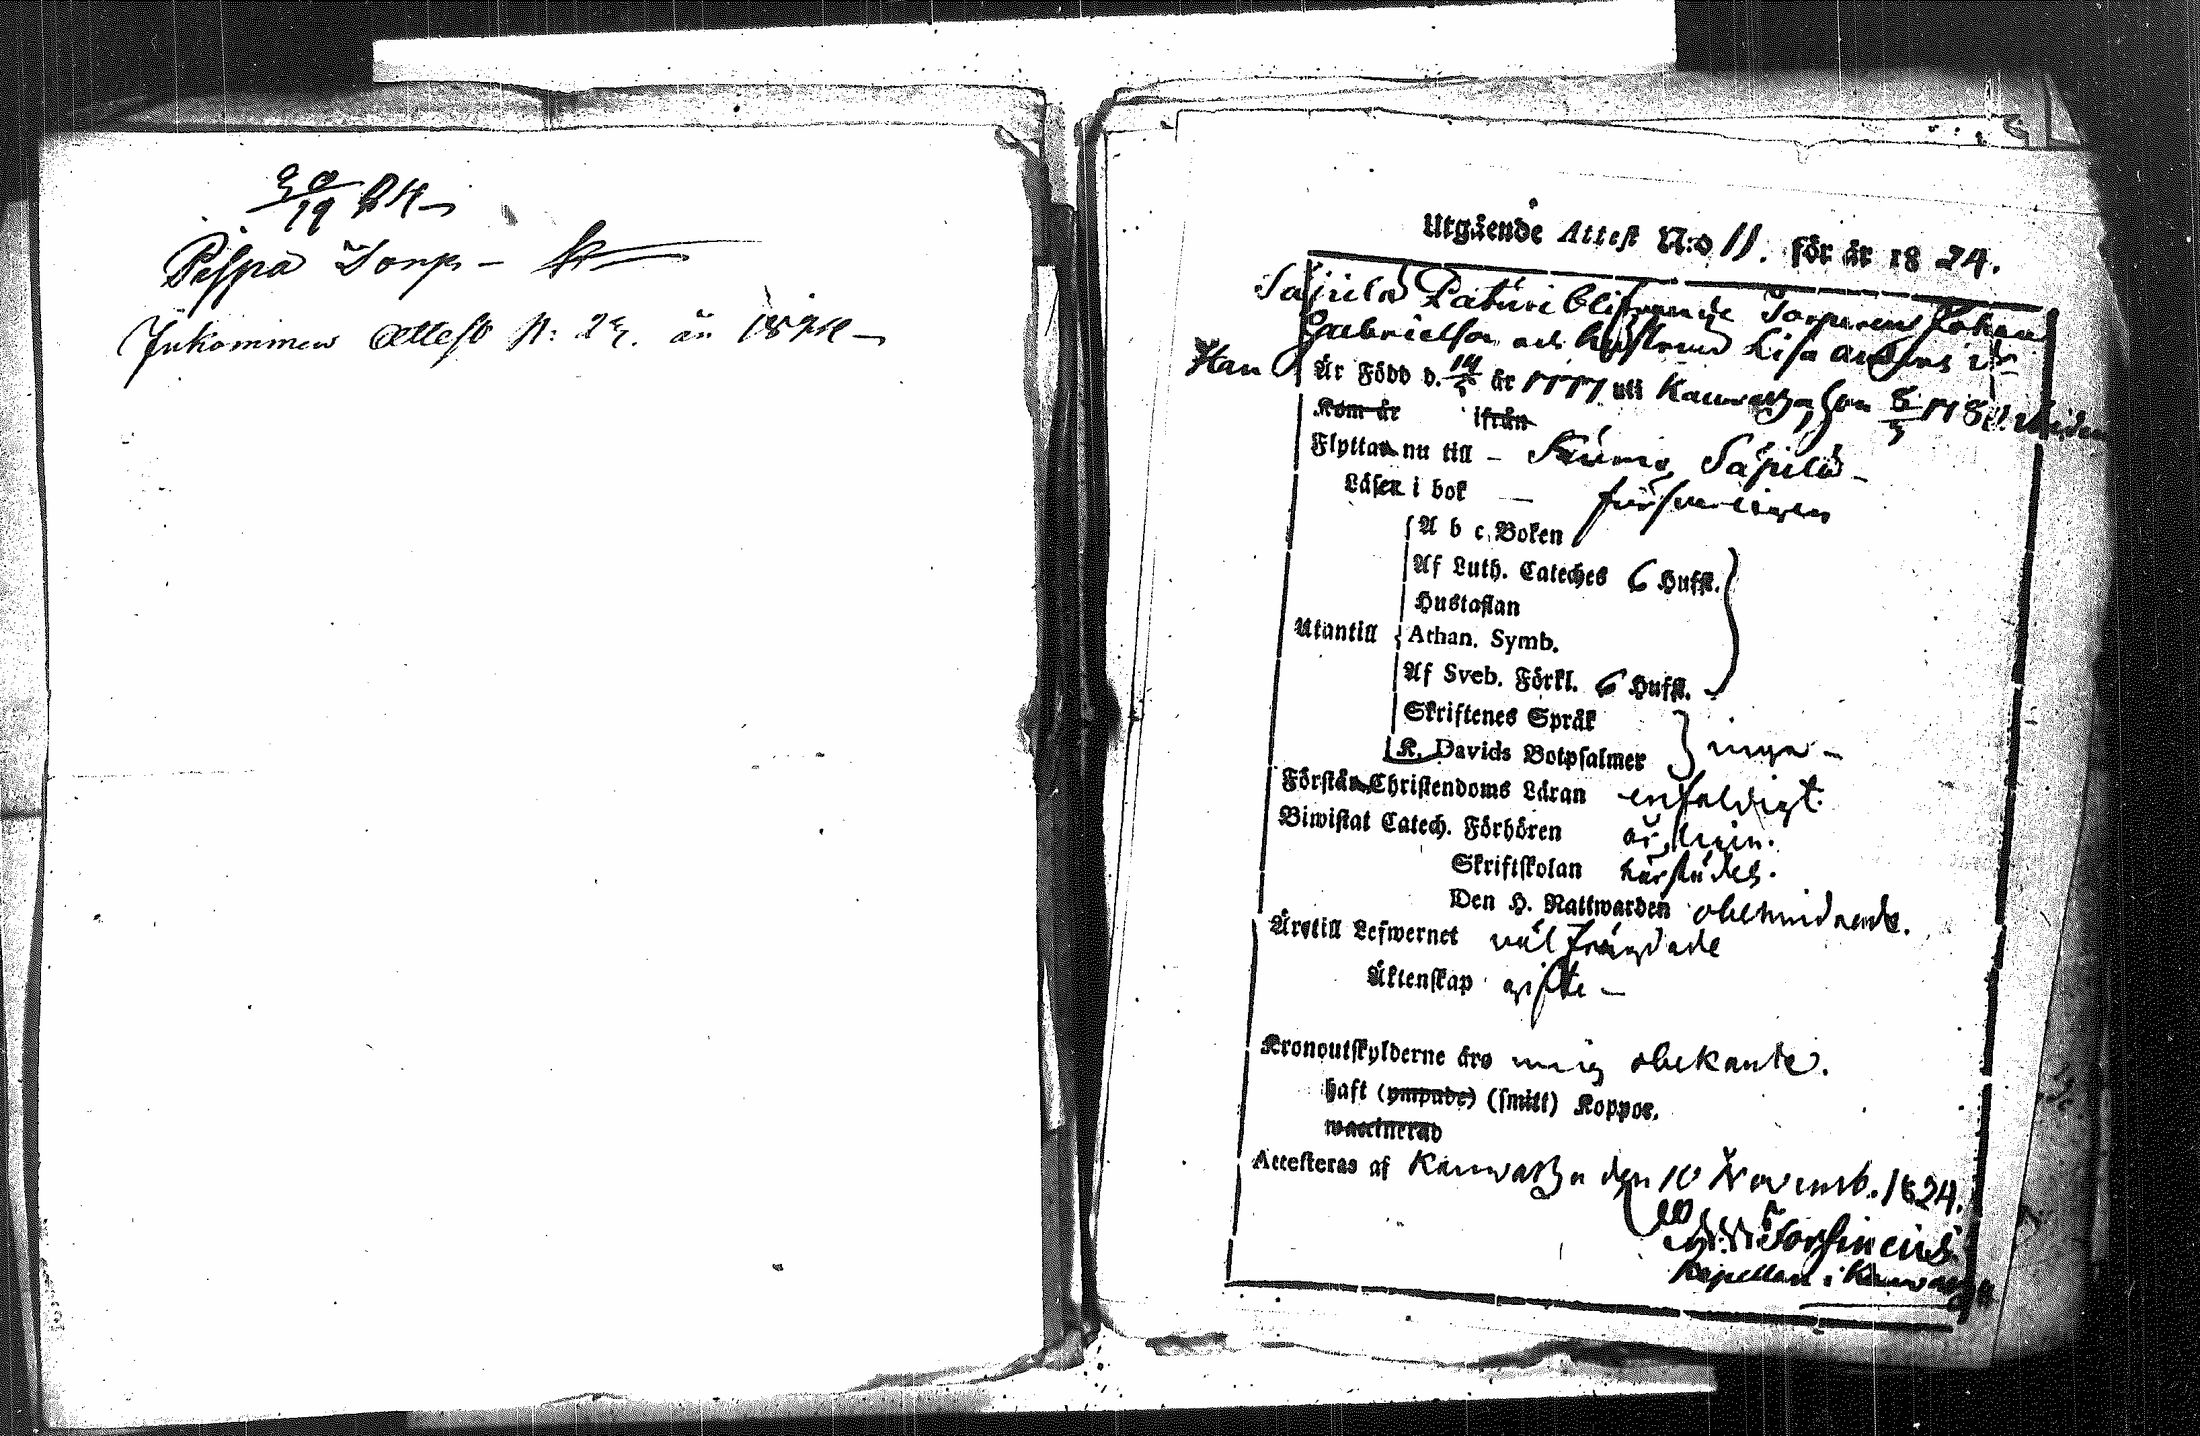 Pespä Torp –
Inkommen Attest N: 23. år 1824 –
Utgående Attest N:o 11. för år 1824.
Säpilä Paturi blifvande Torparen Johan
Gabrielson och hustrun Lisa Anders dr
Han Är Född d. 14/5 år 1777 uti Kauvatsa hon 8/3 178
Kom år ifrån
Flyttar nu till – Kumo Säpilä –
Läser i bok – försvarligen
A b c Boken
Af Luth. Cateches 6 Hufst.
Hustaflan
Utantill Athan. Symb.
Af Sveb. Förkl. 6 Hufst.
Skriftenes Språk
K. Davids Botpsalmer inga –
Förstår Christendoms Läran enfaldigt.
Biwistat Catech. Förhören
Skriftskolan härstädes.
Den H. Nattwarden obehindrade.
Är till Lefwernet väl frägdade
Äktenskap gifte –
Kronoutskylderne äro mig obekante.
haft (ympade) (smitt) Koppor.
waccinerad
Attesteras af Kauwatsa den 10 Novemb. 1824.
Kapellan i Kauwatsa